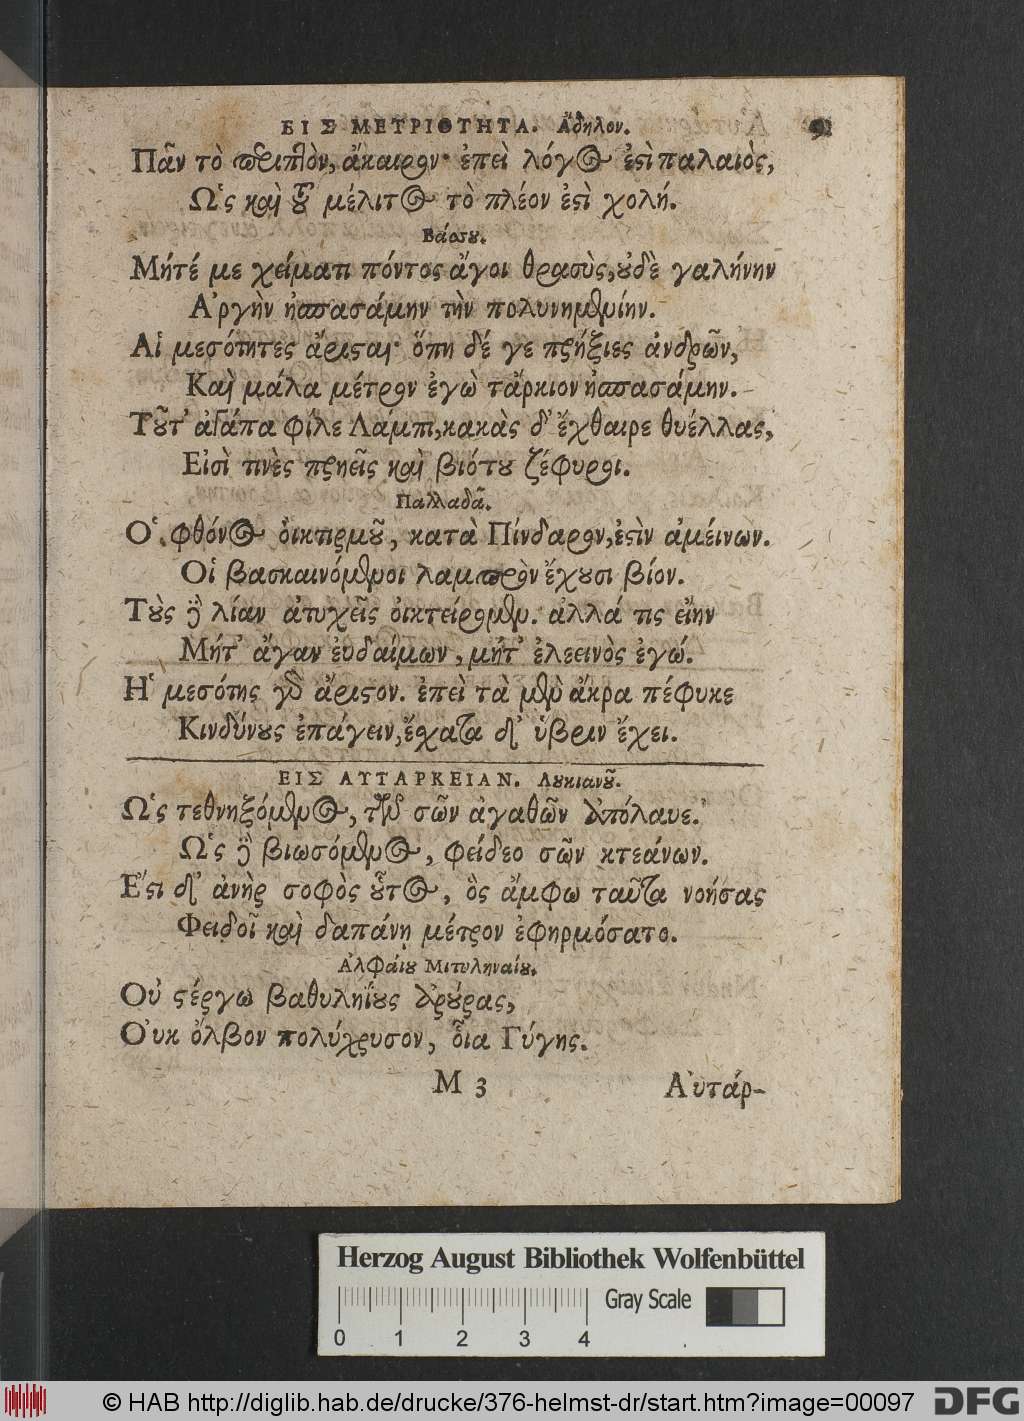 ΕΙΣ ΜΕΤΡΙΟΤΗΤΑ. Ἄδηλον.
Πᾶν τὸ περιττὸν, ἄκαιρον· ἐπεὶ λόγος ἐστὶ παλαιὸς,
Ὡς καὶ τοῦ μέλιτος τὸ πλέον ἐστὶ χολή.
Βάσσου.
Μήτέ με χείματι πόντος ἄγοι θρασὺς, οὐδὲ γαλήνην
Ἀργὴν ἠσπασάμην τὴν πολυνημεμίην.
Αἱ μεσότητες ἄρισται· ὅπη δέ γε πρήξιες ἀνδρῶν,
Καὶ μάλα μέτρον ἐγὼ τἄρκιον ἠσπασάμην.
Τοῦτ' ἀγάπα φίλε Λάμπι, κακὰς δ' ἔχθαιρε θυέλλας,
Εἰσὶ τινὲς πρηεῖς καὶ βιότου ζέφυροι.
Παλλαδᾶ.
Ὁ φθόνος οἰκτιρμοῦ, κατὰ Πίνδαρον, ἐστὶν ἀμείνων.
Οἱ βασκαινόμενοι λαμπρὸν ἔχουσι βίον.
Τοὺς δὲ λίαν ἀτυχεῖς οἰκτείρομεν. ἀλλά τις εἴην
Μήτ' ἄγαν εὐδαίμων, μήτ' ἐλεεινὸς ἐγώ.
Ἡ μεσότης γὰρ ἄριστον. ἐπεὶ τὰ μὲν ἄκρα πέφυκε
Κινδύνους ἐπάγειν, ἔσχατα δ' ὕβριν ἔχει.
ΕΙΣ ΑΥΤΑΡΚΕΙΑΝ. Λουκιανοῦ.
Ὡς τεθνηξόμενος, τῶν σῶν ἀγαθῶν ἀπόλαυε.
Ὡς δὲ βιωσόμενος, φείδεο σῶν κτεάνων.
Ἔστι δ' ἀνὴρ σοφὸς οὗτος, ὃς ἄμφω ταῦτα νοήσας
Φειδοῖ καὶ δαπάνῃ μέτρον ἐφηρμόσατο.
Ἀλφαίου Μιτυληναίου.
Οὐ στέργω βαθυληΐους ἀρούρας,
Οὐκ ὄλβον πολύχρυσον, οἷα Γύγης.
M 3 Αὐτάρ-
Herzog August Bibliothek Wolfenbüttel
Gray Scale
0 1 2 3 4
© HAB http://diglib.hab.de/drucke/376-helmst-dr/start.htm?image=00097 DFG